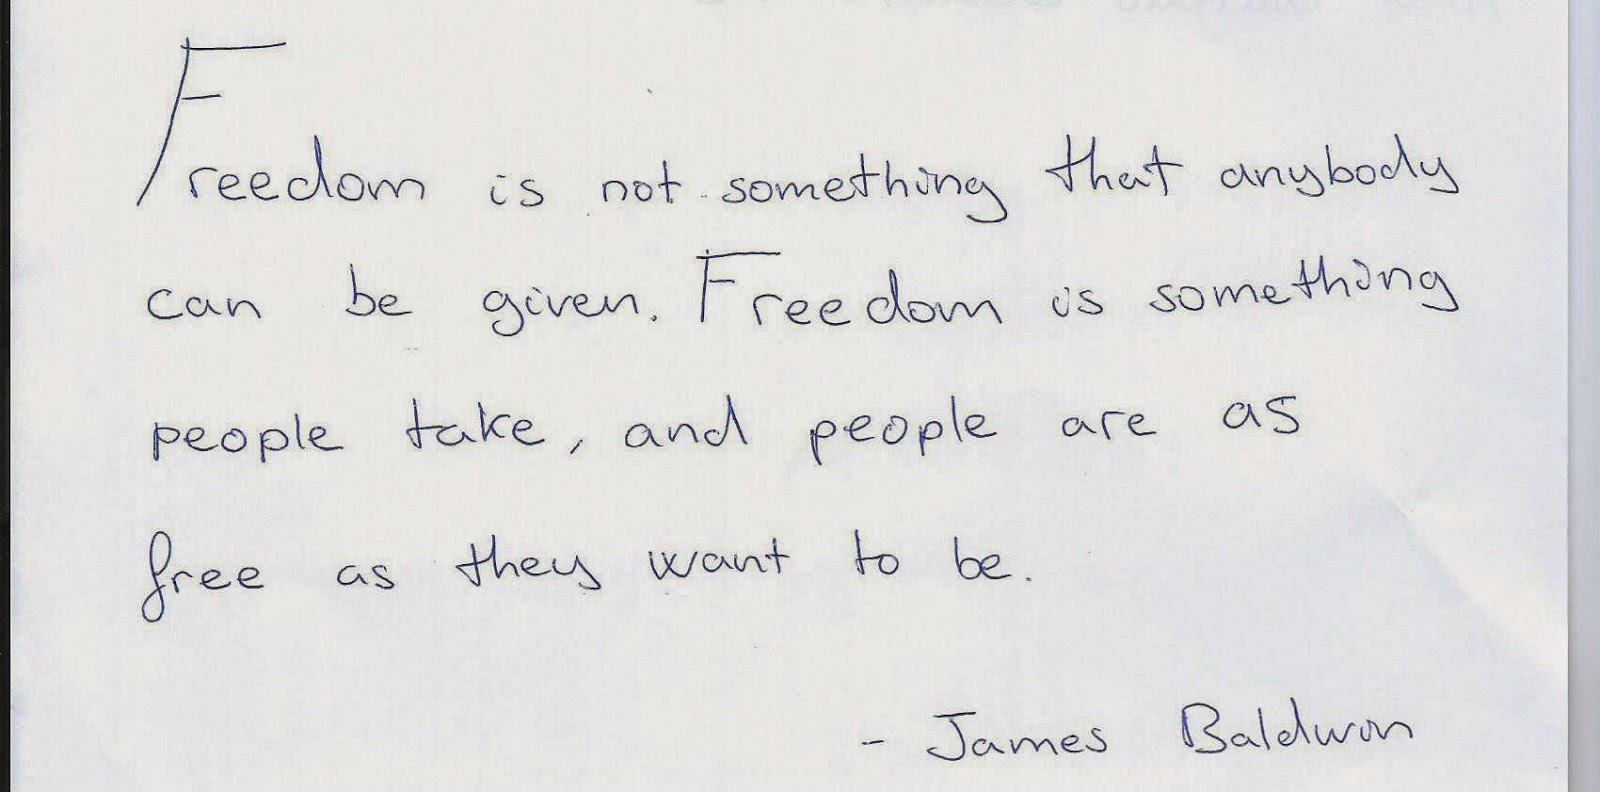 Freedom is not something that anybody
can be given. Freedom is something
people take, and people are as
free as they want to be.
- James Baldwin